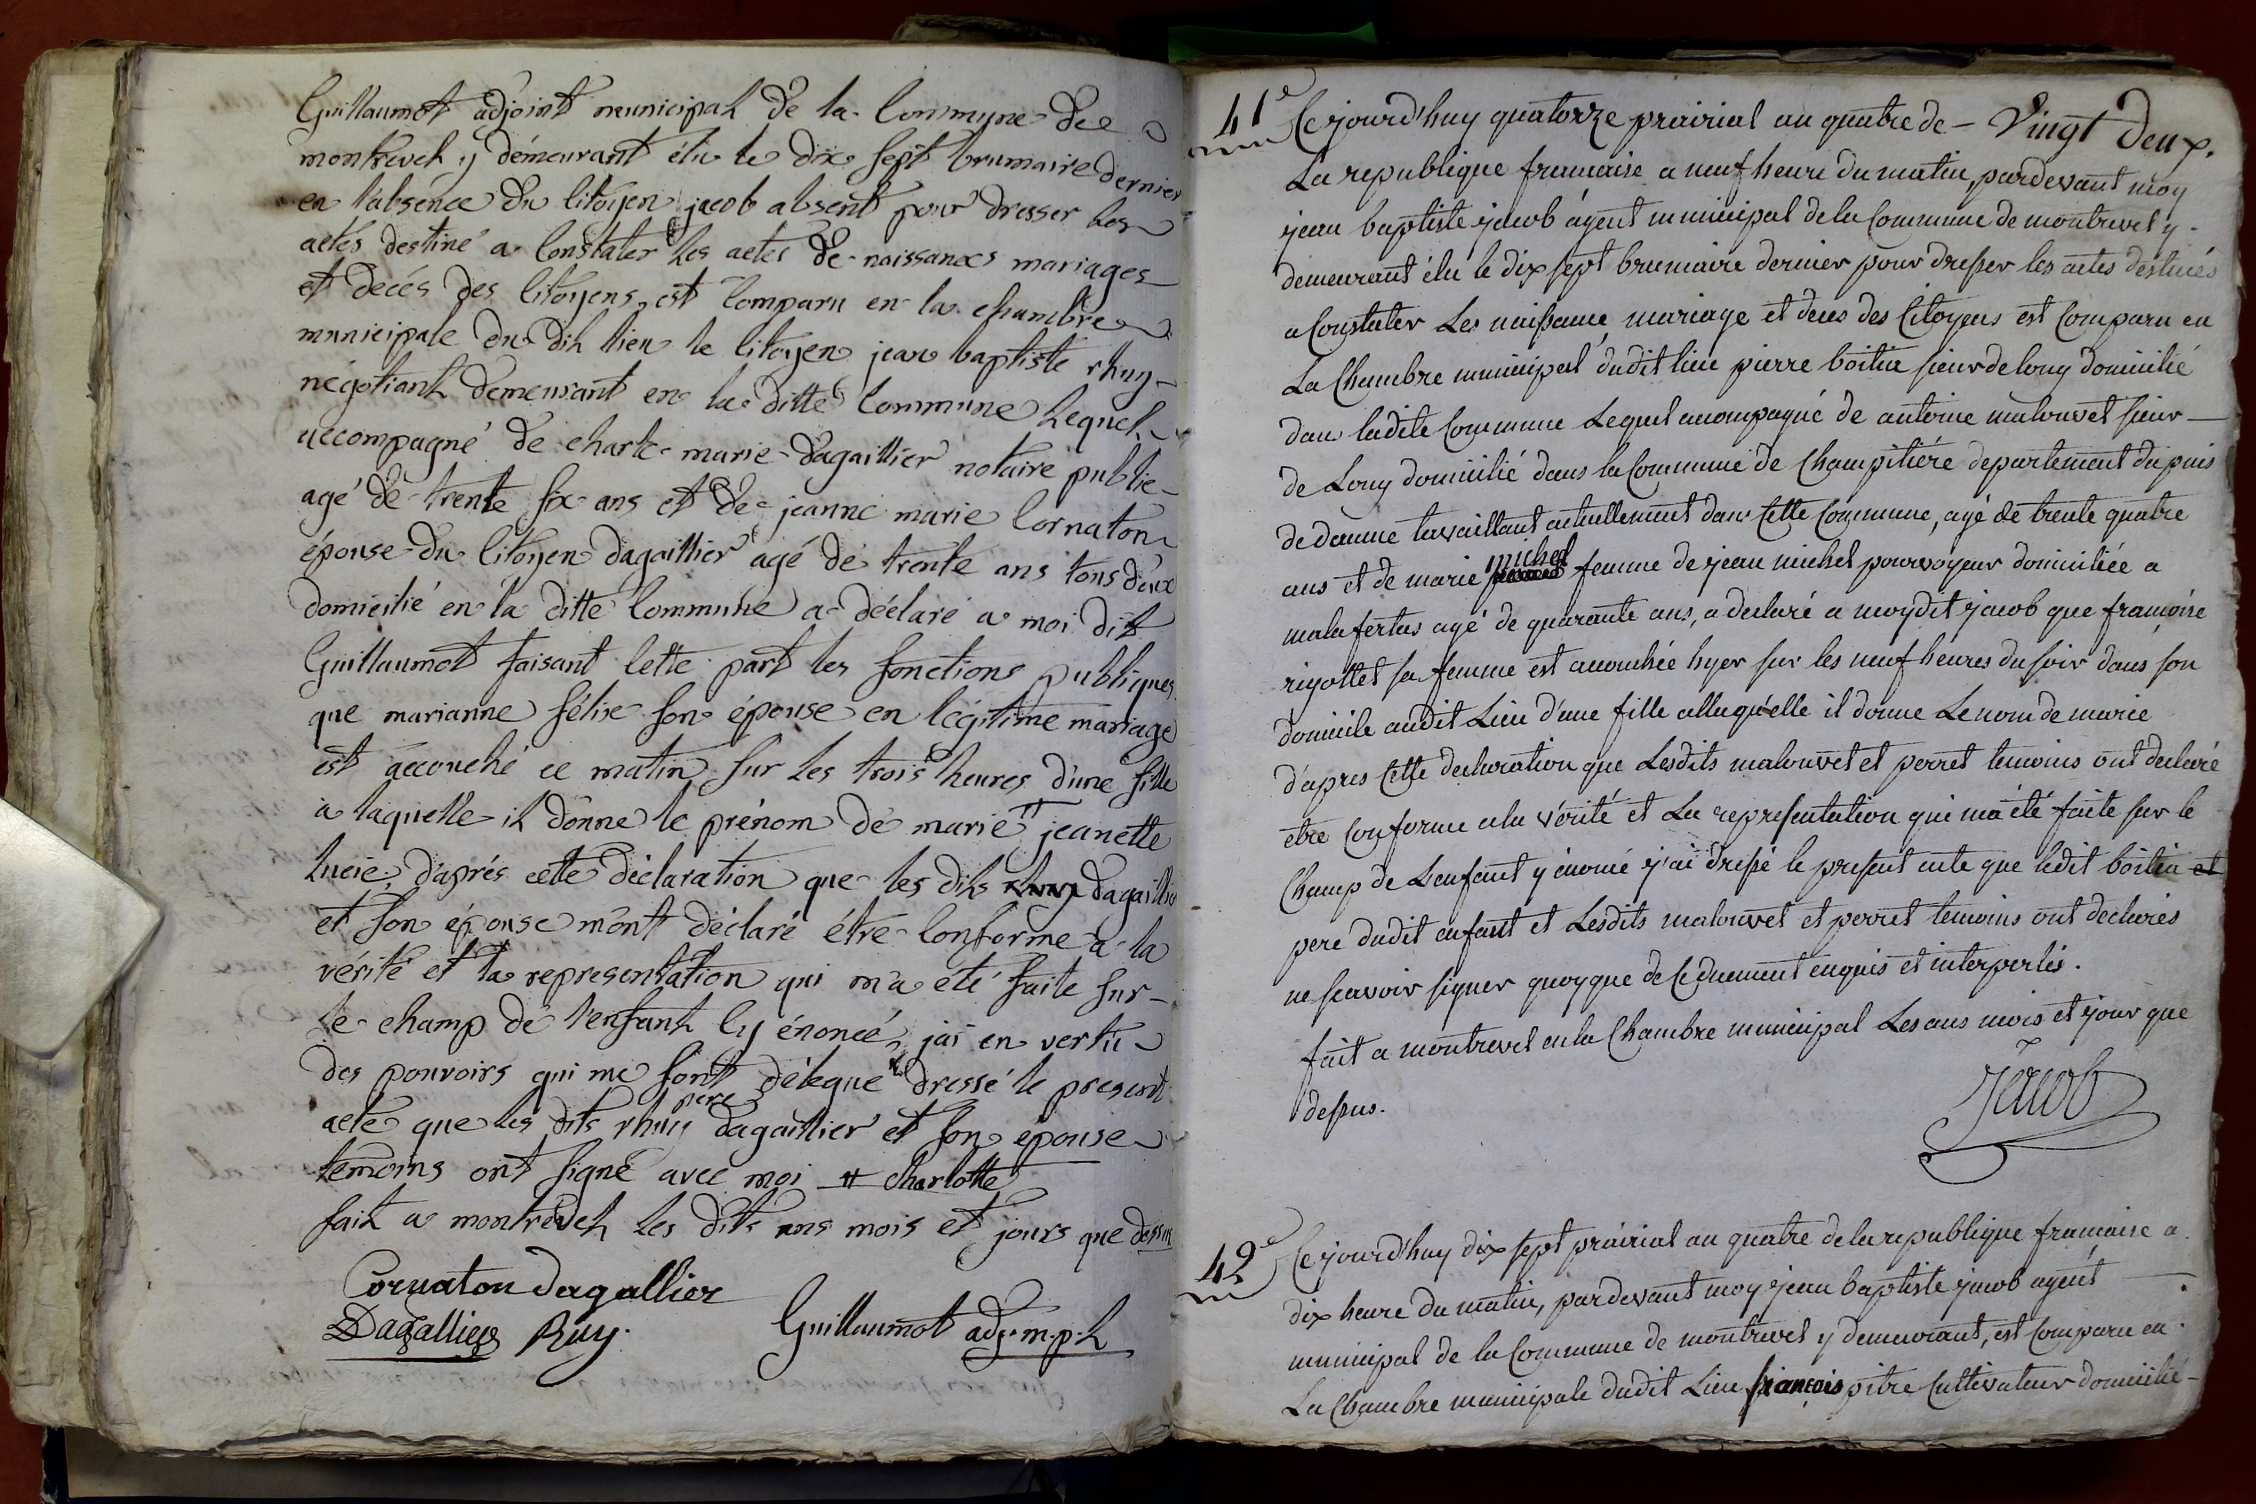 Guillaumot adjoint municipal de la Commune de
montrevel y démeurant élu le dix sept brumaire dernier
en l'absence du Citoyen jacob absent pour dresser les
actés destiné a Constater les actes de naissances mariages
et decés des Citoyens, est Comparu en la chambre
municipale du dit lieu le Citoyen jean baptiste rhuy
négotiant demeurant en la ditte Commune Lequel
accompagné de charle marie dagaillier notaire public
agé de trente six ans et de jeanne marie Cornaton
épouse du Citoyen dagaillier agé de trente ans tous deux
domicilié en la ditte Commune a déclaré a moi dit
Guillaumot faisant Cette part les fonctions publiques
que marianne félix son épouse en légitime mariage
est accouché ce matin sur les trois heures d'une fille
à laquelle il donne le prénom de marie # jeanette
Lucie, d'aprés cette déclaration que les dits dagaillier
et son épouse m'ont déclaré étre Conforme a la
vérité et la representation qui m'a été faite sur
le champ de l'enfant Cy énoncé, jai en vertu
des pouvoirs qui me sont délegué dressé le present
acte que les dits rhuy pere dagaillier et son épouse
temoins ont signé avec moi # charlotte
fait a montrevel les dits ans mois et jours que dessus
Cornaton dagallier
Dagallier Ruy. Guillaumot adj. m.p.l
41e Cejourd'huy quatorze prairial an quatre de - Vingt Deux.
La republique francaise a neuf heure du matin, pardevant moy
jean baptiste jacob agent municipal de la Commune de montrevel y
demeurant élu le dix sept brumaire dernier pour dresser les actes destinés
a Constater Les naissance mariage et deces des Citoyens est Comparu en
La Chambre municipal dudit lieu pierre boitin sieur de long domicilié
dans ladite Commune Lequel acompagné de antoine malouvet sieur
de Long domicilié dans la Commune de Champitiére departement du puis
de daume travaillant actuellement dans Cette Commune, agé de trente quatre
ans et de marie michel femme de jean michel pourvoyeur domiciliée a
malafertas agé de quarante ans, a declaré a moydit jacob que françoise
rigottet sa femme est acouchée hyer sur les neuf heures du soir dans son
domicile audit Lieu d'une fille allaquelle il donne Le nom de marie
d'apres Cette declaration que Lesdits malouvet et perret temoins ont declaré
etre Conforme a la vérité et La representation qui ma été faite sur le
Champ de L'enfant y énoncé j'ai dressé le present acte que ledit boitin et
pere dudit enfant et Lesdits malouvet et perret temoins ont declarés
ne scavoir signer quoyque de Ce duement enquis et interpertés.
fait a montrevel en la Chambre municipal Les ans mois et jour que
dessus.
Jacob
42e Cejourd'huy dix sept prairial an quatre de la republique francaise a
dix heure du matin, pardevant moy jean baptiste jacob agent
municipal de la Commune de montrevel y demeurant, est Comparu en
La Chambre municipale dudit Lieu françois pitre Cultivateur domicilié